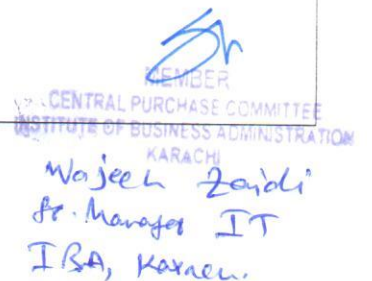 MEMBER
CENTRAL PURCHASE COMMITTEE
INSTITUTE OF BUSINESS ADMINISTRATION
KARACHI
Wajeeh Zaidi
Sr. Manager IT
IBA, Karachi.